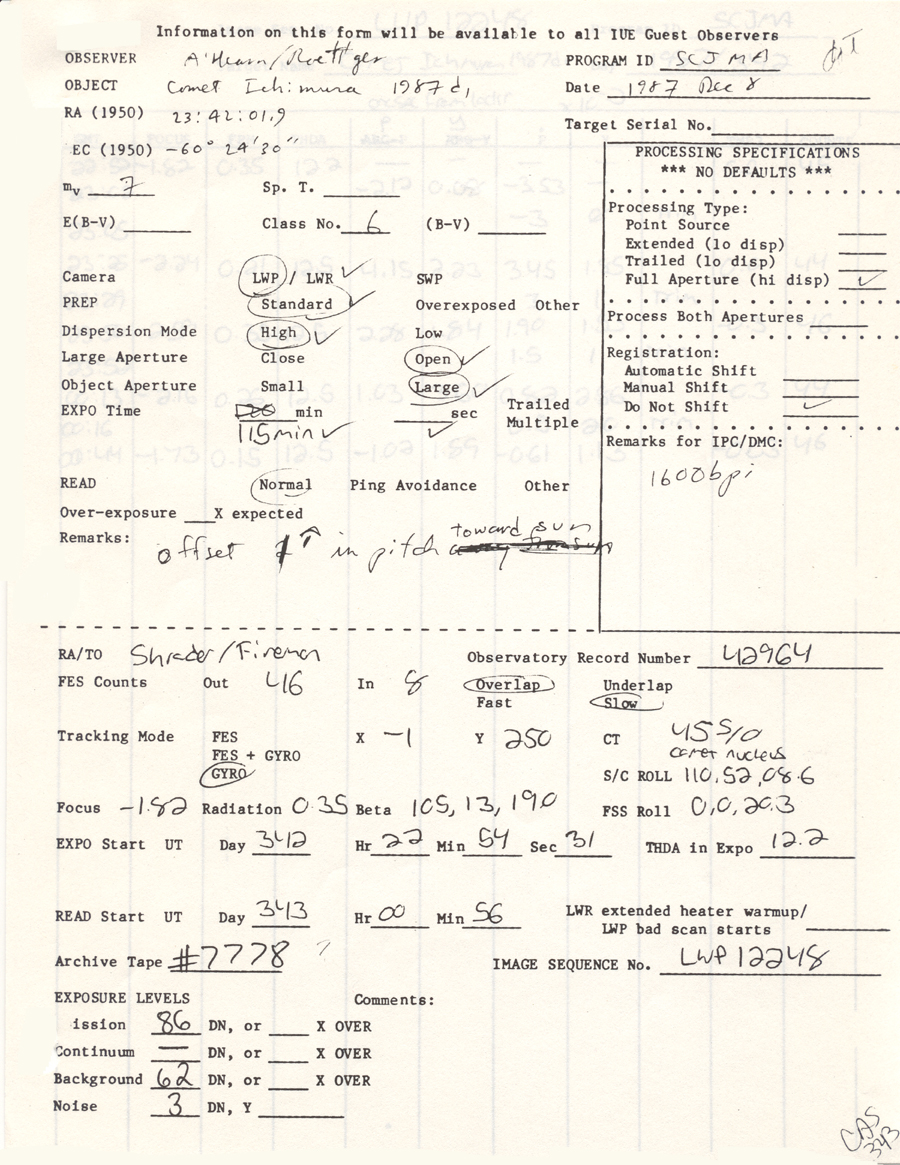 Information on this form will be available to all IUE Guest Observers
OBSERVER A'Hearn/Roettger PROGRAM ID SCJMA
OBJECT Comet Ichimura 1987d, Date 1987 Dec 8
RA (1950) 23:42:01.9
Target Serial No.
EC (1950) -60° 24' 30"
PROCESSING SPECIFICATIONS
*** NO DEFAULTS ***
mv 7 Sp. T.
Processing Type:
Point Source
E(B-V) Class No. 6 (B-V)
Extended (lo disp)
Trailed (lo disp)
Full Aperture (hi disp) ✓
Camera LWP / LWR ✓ SWP
PREP Standard ✓ Overexposed Other
Process Both Apertures
Dispersion Mode High ✓ Low
Large Aperture Close Open ✓
Registration:
Automatic Shift
Object Aperture Small Large ✓
Manual Shift
Do Not Shift ✓
EXPO Time min sec Trailed
115min ✓ ✓ Multiple
Remarks for IPC/DMC:
1600bpi
READ Normal Ping Avoidance Other
Over-exposure X expected
Remarks: offset ↑ in pitch toward sun
RA/TO Shrader/Fireman Observatory Record Number 42964
FES Counts Out 416 In 8 Overlap Underlap
Fast Slow
Tracking Mode FES X -1 Y 250 CT 45 S/0
FES + GYRO comet nucleus
GYRO S/C ROLL 110,52,08.6
Focus -1.82 Radiation 0.35 Beta 105,13,19.0 FSS Roll 0,0,20.3
EXPO Start UT Day 342 Hr 22 Min 54 Sec 31 THDA in Expo 12.2
READ Start UT Day 343 Hr 00 Min 56 LWR extended heater warmup/
LWP bad scan starts
Archive Tape #7778 ? IMAGE SEQUENCE No. LWP 12248
EXPOSURE LEVELS Comments:
ission 86 DN, or X OVER
Continuum — DN, or X OVER
Background 62 DN, or X OVER
Noise 3 DN, Y
CAS
343